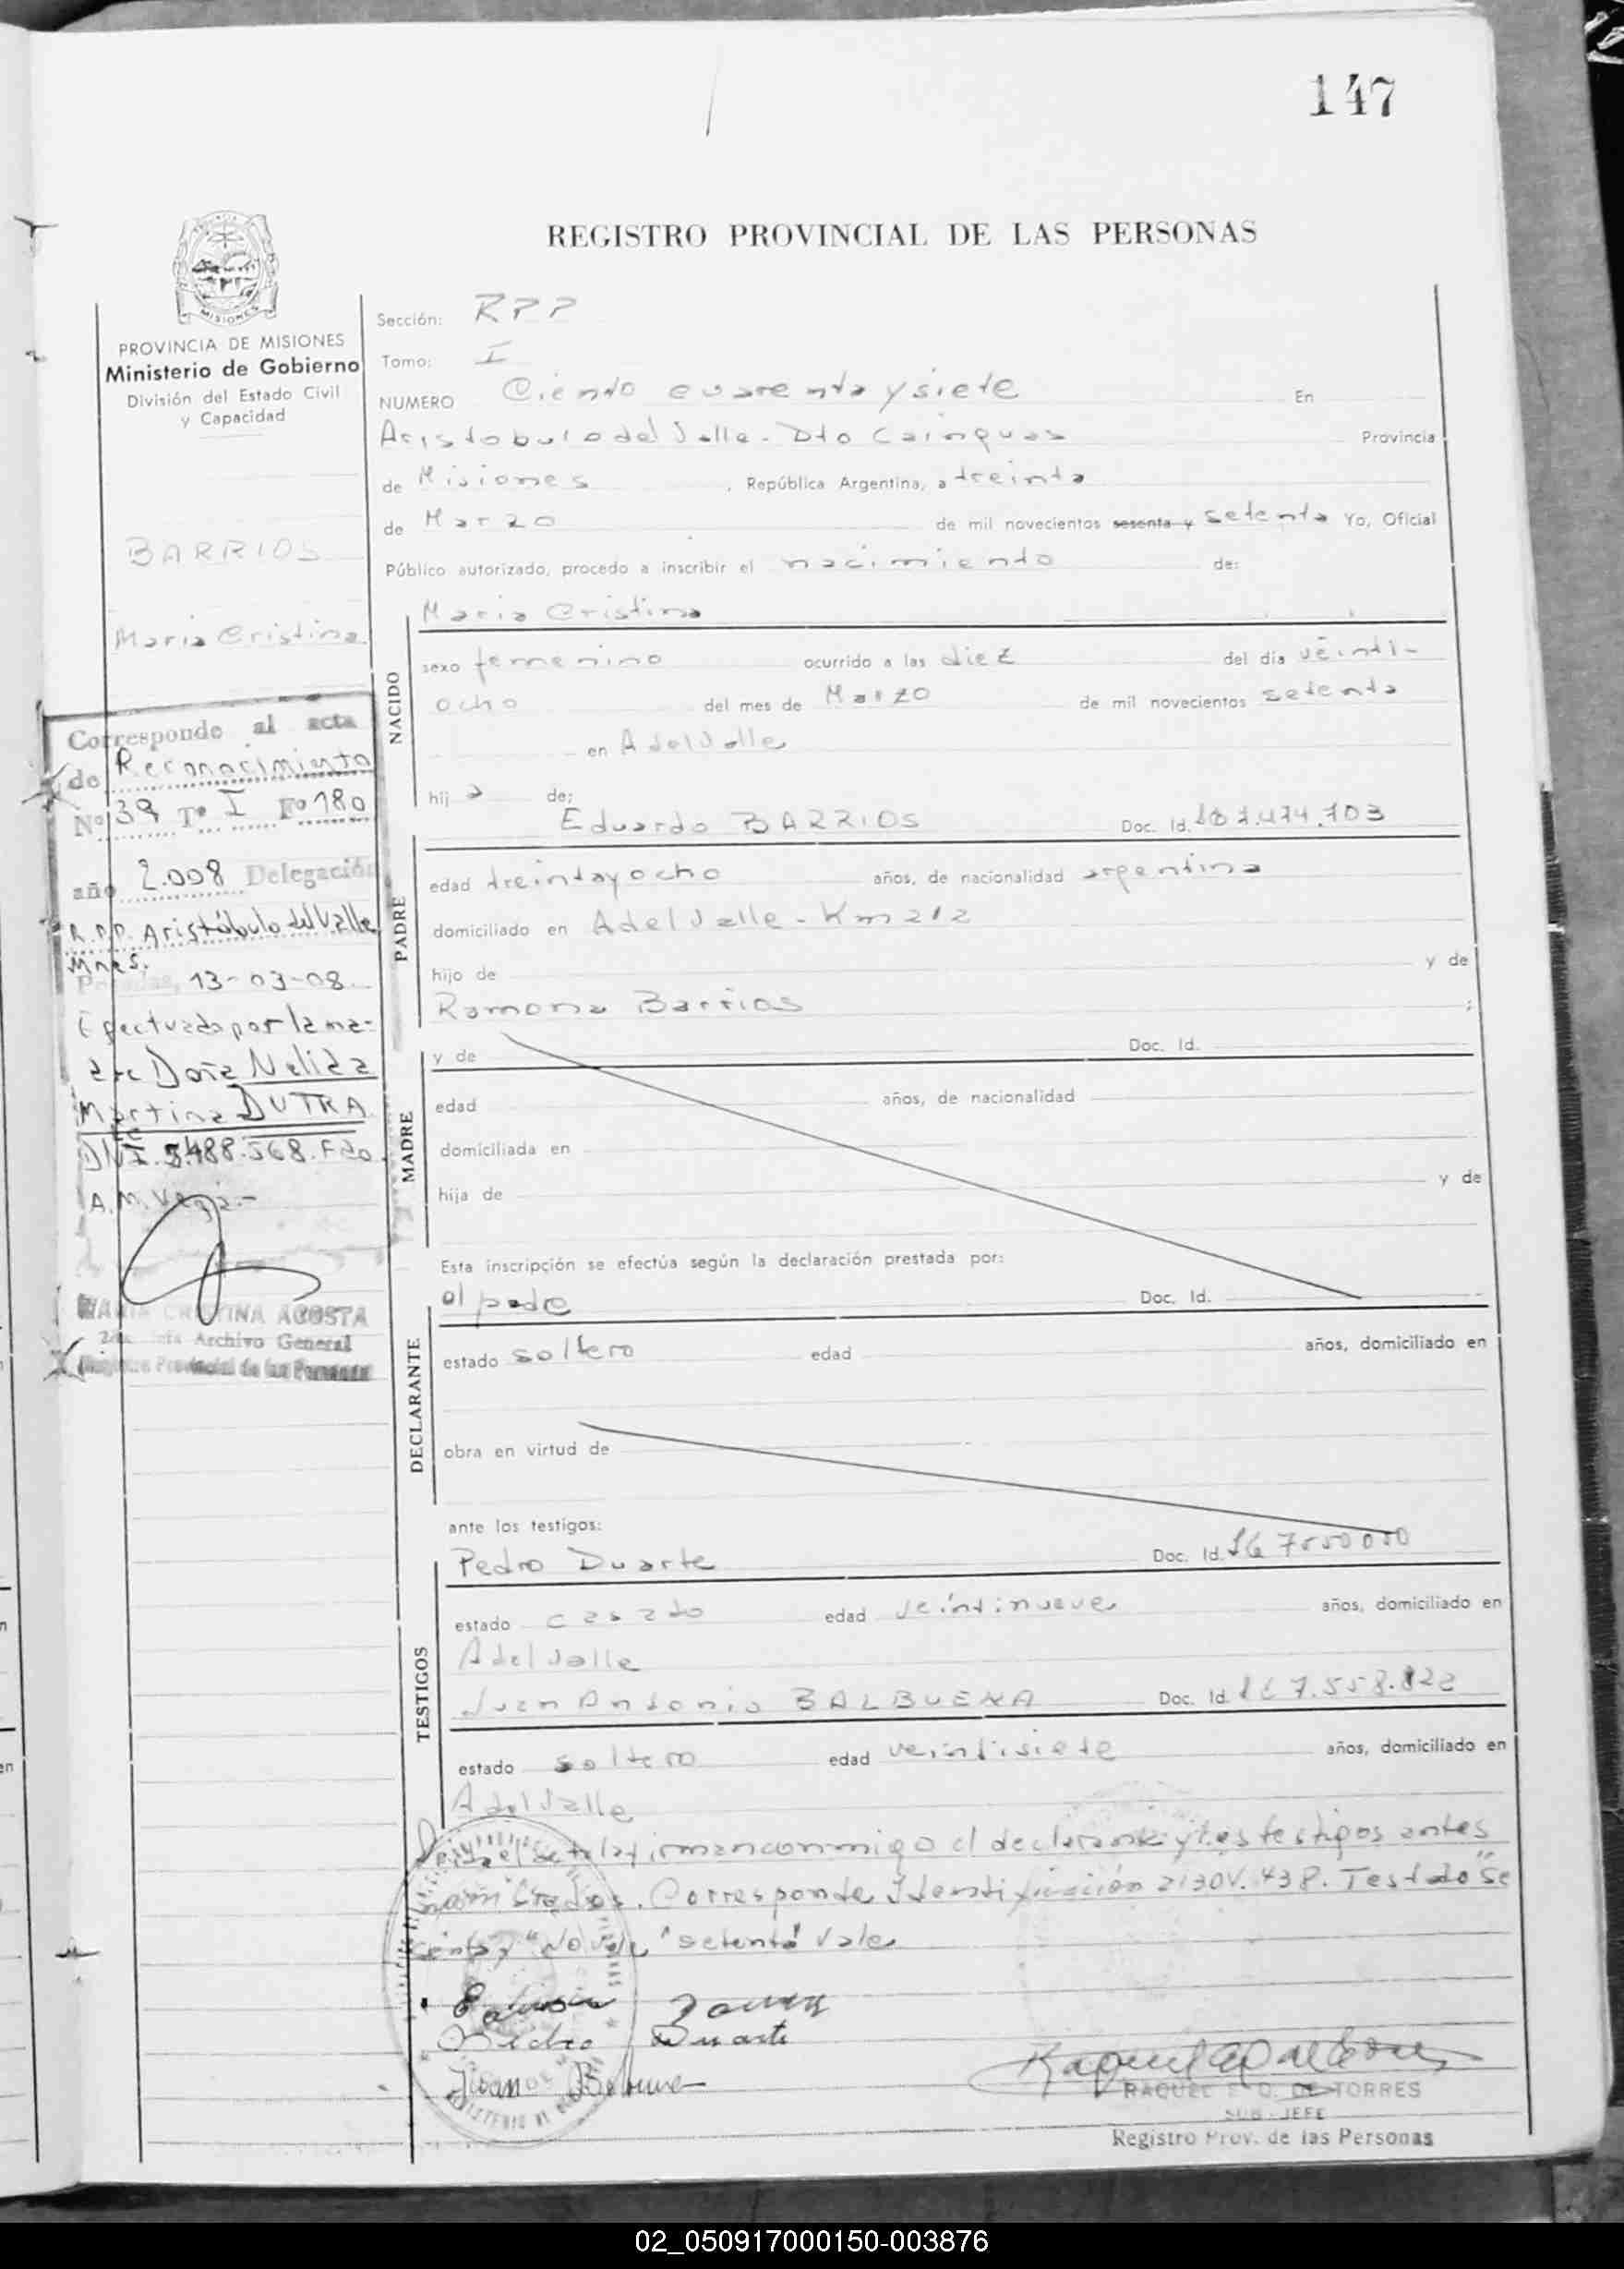 147
REGISTRO PROVINCIAL DE LAS PERSONAS
MISIONES
PROVINCIA DE MISIONES
Ministerio de Gobierno
División del Estado Civil
y Capacidad
BARRIOS
Maria Cristina
Corresponde al acta
de Reconocimiento
Nº 39 Tº I Fº 180
año 2.008 Delegación
R.P.P. Aristóbulo del Valle
Mnes.
13-03-08
Efectuado por la ma-
dre Doña Nelida
Martina DUTRA
488.568. Fdo
A.M. Vega.-
MARIA CRISTINA ACOSTA
Archivo General
Registro Provincial de las Personas
Sección: RPP
Tomo: I
NUMERO Ciento cuarenta y siete En
Aristobulo del Valle - Dto Cainguas Provincia
de Misiones, República Argentina, a treinta
de Marzo de mil novecientos sesenta y setenta Yo, Oficial
Público autorizado, procedo a inscribir el nacimiento de:
Maria Cristina
NACIDO
sexo femenino ocurrido a las diez del día veinti-
ocho del mes de Marzo de mil novecientos setenta
en A del Valle
hij a de:
Eduardo BARRIOS Doc. Id. 7.474.703
PADRE
edad treinta y ocho años, de nacionalidad argentina
domiciliado en A del Valle - Km 212
hijo de y de
Ramona Barrios ;
y de Doc. Id.
MADRE
edad años, de nacionalidad
domiciliada en
hija de y de
Esta inscripción se efectúa según la declaración prestada por:
el padre Doc. Id.
DECLARANTE
estado soltero edad años, domiciliado en
obra en virtud de
ante los testigos:
Pedro Duarte Doc. Id.
TESTIGOS
estado casado edad veintinueve años, domiciliado en
A del Valle
Juan Antonio BALBUENA Doc. Id. 7.558.822
estado soltero edad veintisiete años, domiciliado en
A del Valle
el acta la firman conmigo el declarante y los testigos antes
nombrados. Corresponde Identificación 2130V.438. Testado "Se
senta y" No vale "setenta" Vale
Pedro Duarte
Juan
RAQUEL E O. DE TORRES
SUB-JEFE
Registro Prov. de las Personas
02_050917000150-003876